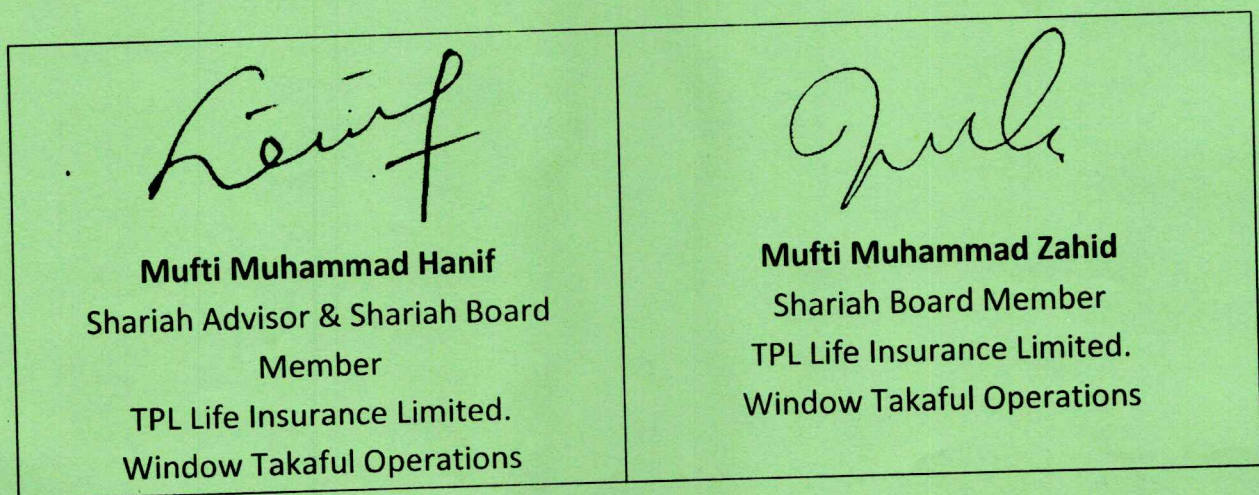 Mufti Muhammad Hanif
Shariah Advisor & Shariah Board
Member
TPL Life Insurance Limited.
Window Takaful Operations
Mufti Muhammad Zahid
Shariah Board Member
TPL Life Insurance Limited.
Window Takaful Operations